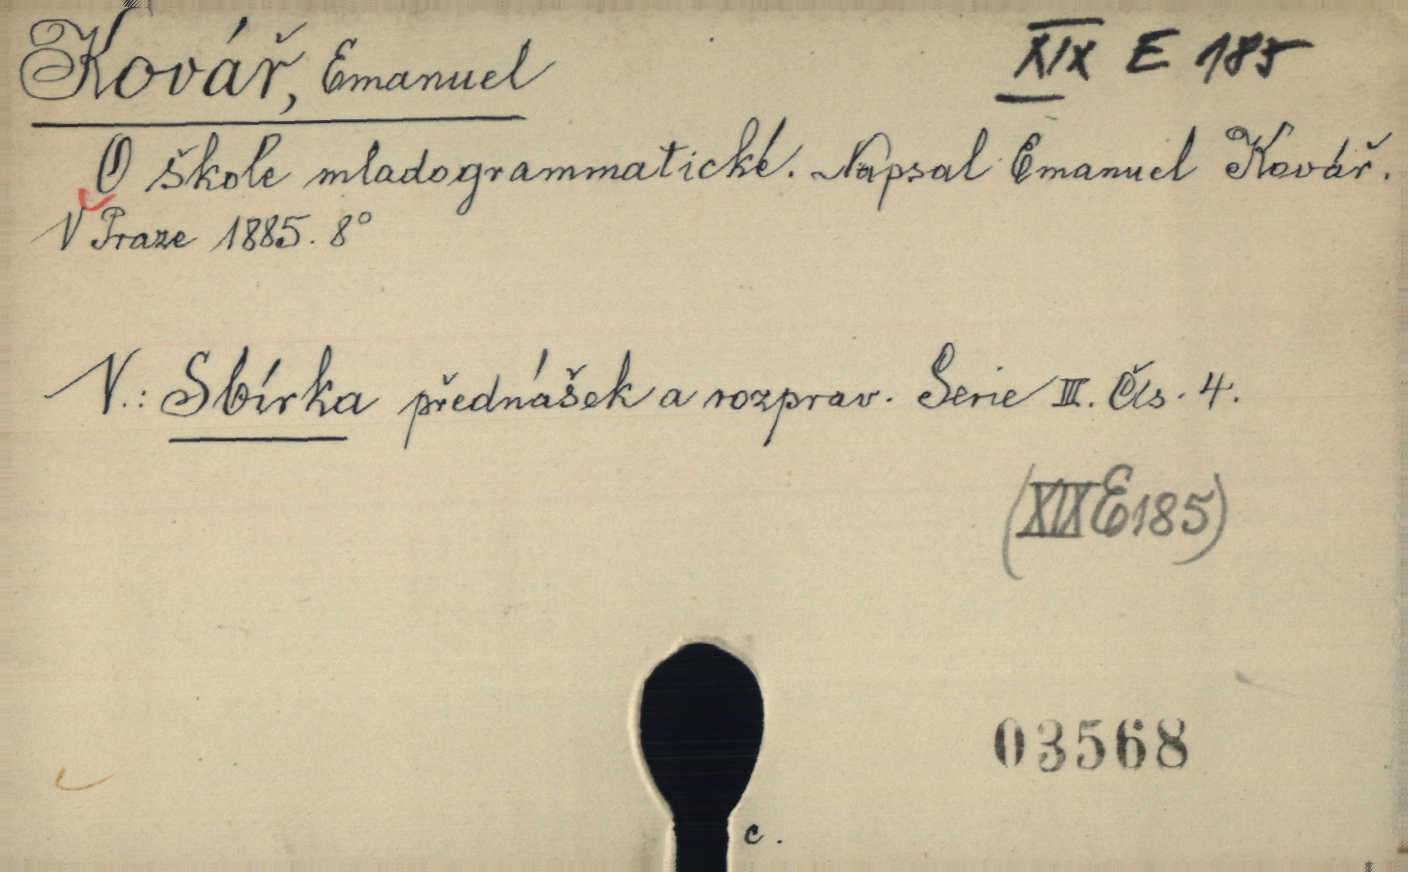 Kovář, Emanuel
XIX E 185
O škole mladogrammatické. Napsal Emanuel Kovář.
V Praze 1885. 8°
V.: Sbírka přednášek a rozprav. Serie III. Čís. 4.
(XIX E 185)
03568
c.